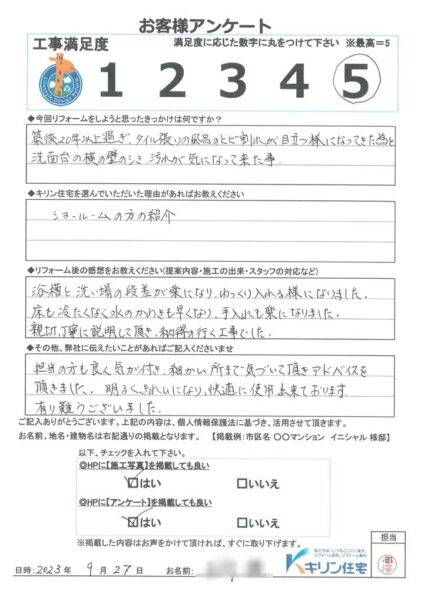 お客様アンケート
工事満足度 満足度に応じた数字に丸をつけて下さい ※最高＝5
1 2 3 4 5
◆今回リフォームをしようと思ったきっかけは何ですか?
築後20年以上過ぎ、タイル張りの風呂のヒビ割れが目立つ様になってきた為と
洗面台の横の壁のシミ、汚れが気になって来た事.
◆キリン住宅を選んでいただいた理由があればお教えください
ショールームの方の紹介
◆リフォーム後の感想をお教えください(提案内容・施工の出来・スタッフの対応など)
浴槽と洗い場の段差が楽になり、ゆっくり入れる様になりました。
床も冷たくなく水のかわきも早くなり、手入れも楽になりました。
親切、丁寧に説明して頂き、納得の行く工事でした。
◆その他、弊社に伝えたいことがあればご記入くださいませ
担当の方も良く気が付き、細かい所まで気づいて頂きアドバイスを
頂きました。明るくきれいになり、快適に使用出来ております。
有り難うございました。
ご記入ありがとうございます。上記の内容は、個人情報保護法に基づき、活用させて頂きます。
お名前、地名・建物名は右記通りの掲載となります。 【掲載例：市区名 〇〇マンション イニシャル 様邸】
以下、チェックを入れて下さい。
◎HPに【施工写真】を掲載しても良い
はい □いいえ
◎HPに【アンケート】を掲載しても良い
はい □いいえ
※掲載した内容はお声をかけて頂ければ、すぐに取り下げます。
キリン住宅
担当
日時：2023 年 9 月 27 日 お名前：